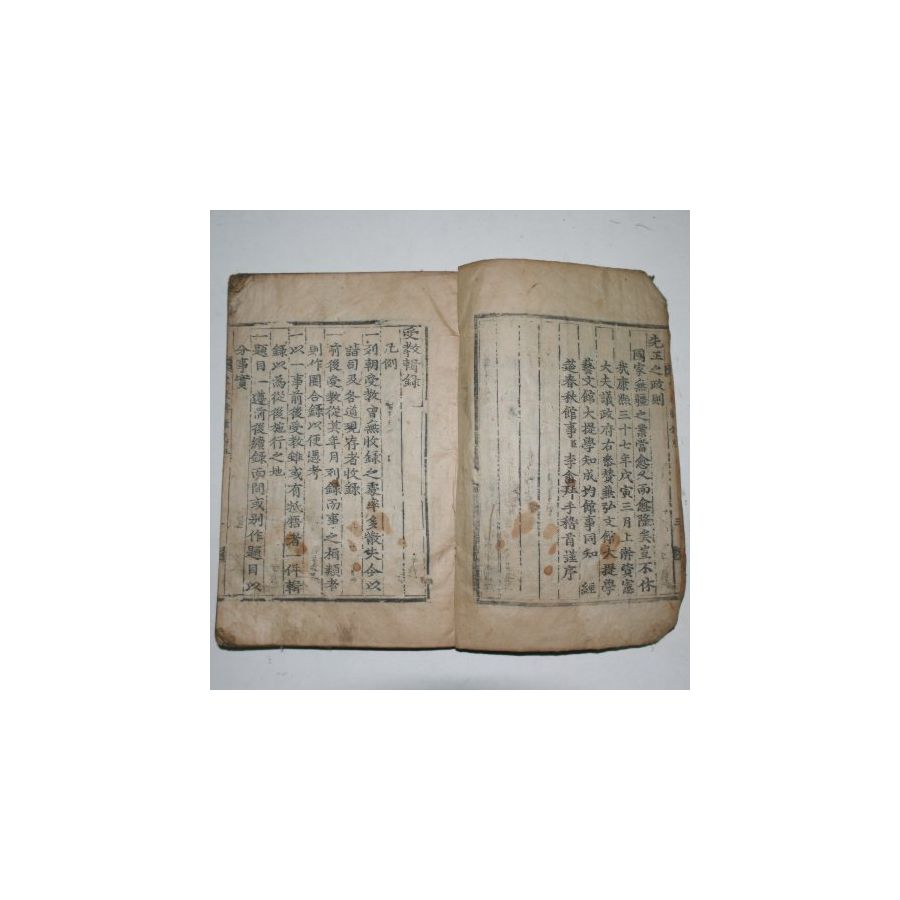 先王之政則
國家無疆之業當愈久而愈隆矣豈不休
我康熙三十七年戊寅三月上澣資憲
大夫議政府右參贊兼弘文館大提學
藝文館大提學知成均館事同知 經
筵春秋館事臣李畬拜手稽首謹序
受教輯錄
凡例
一列朝受教曾無收錄之處率多散失今以
諸司及各道現存者收錄
一前後受教從其年月列錄而事之相類者
則作圈合錄以便憑考
一以一事前後受教雖或有牴牾者一倂輯
錄以爲從後施行之地
一題目一遵前後續錄而間或別作題目以
分事實